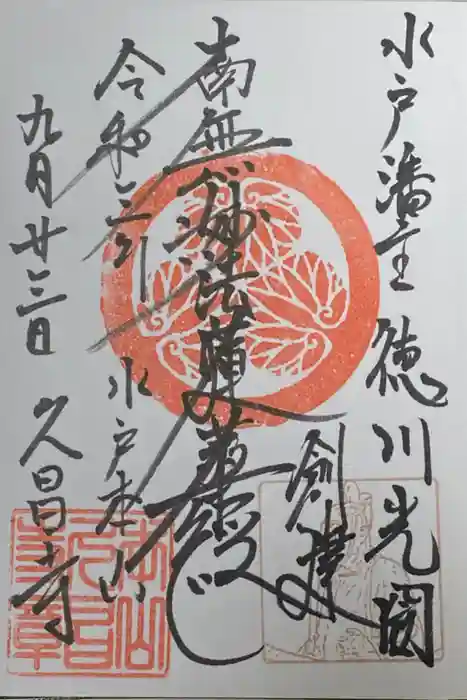 水戸藩主徳川光圀
創建
南無妙法蓮華経
令和三年
水戸本山
九月廿三日
久昌寺